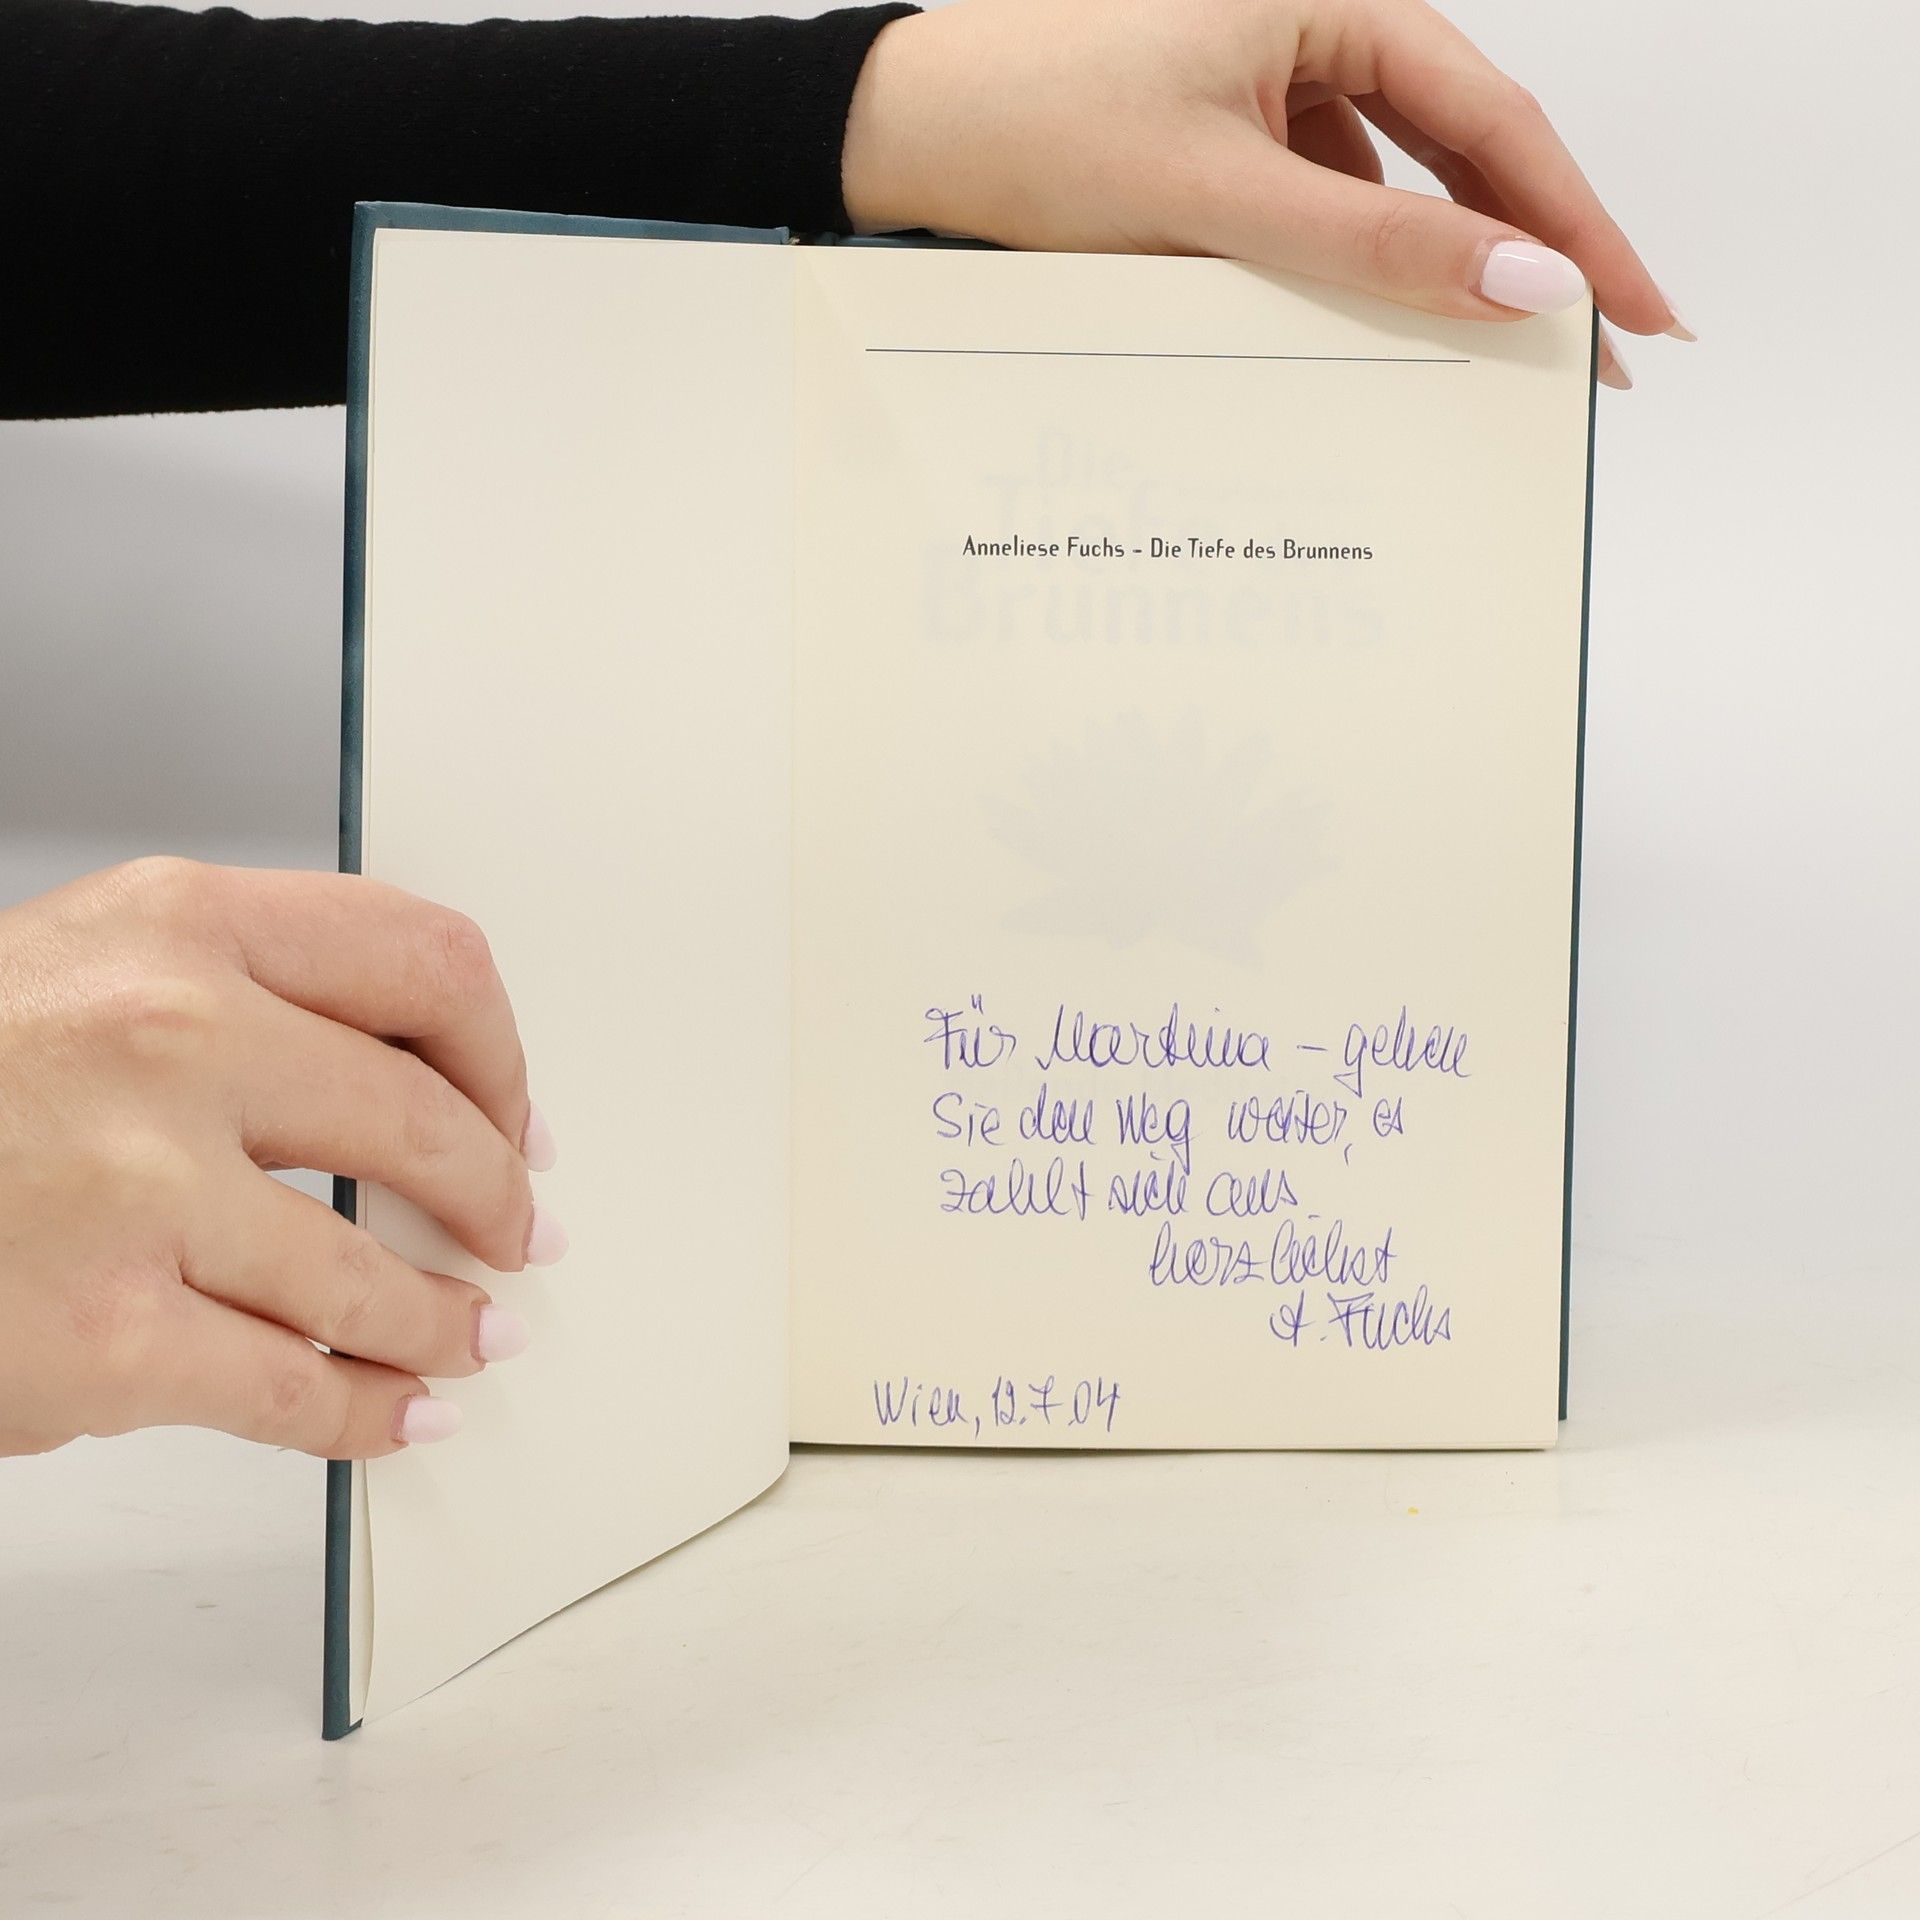 Anneliese Fuchs - Die Tiefe des Brunnens
Die
Tiefe
Brunnens
Für Martina – gehen
Sie den Weg weiter, es
zahlt sich aus.
herzlichst
A. Fuchs
Wien, 12.7.04